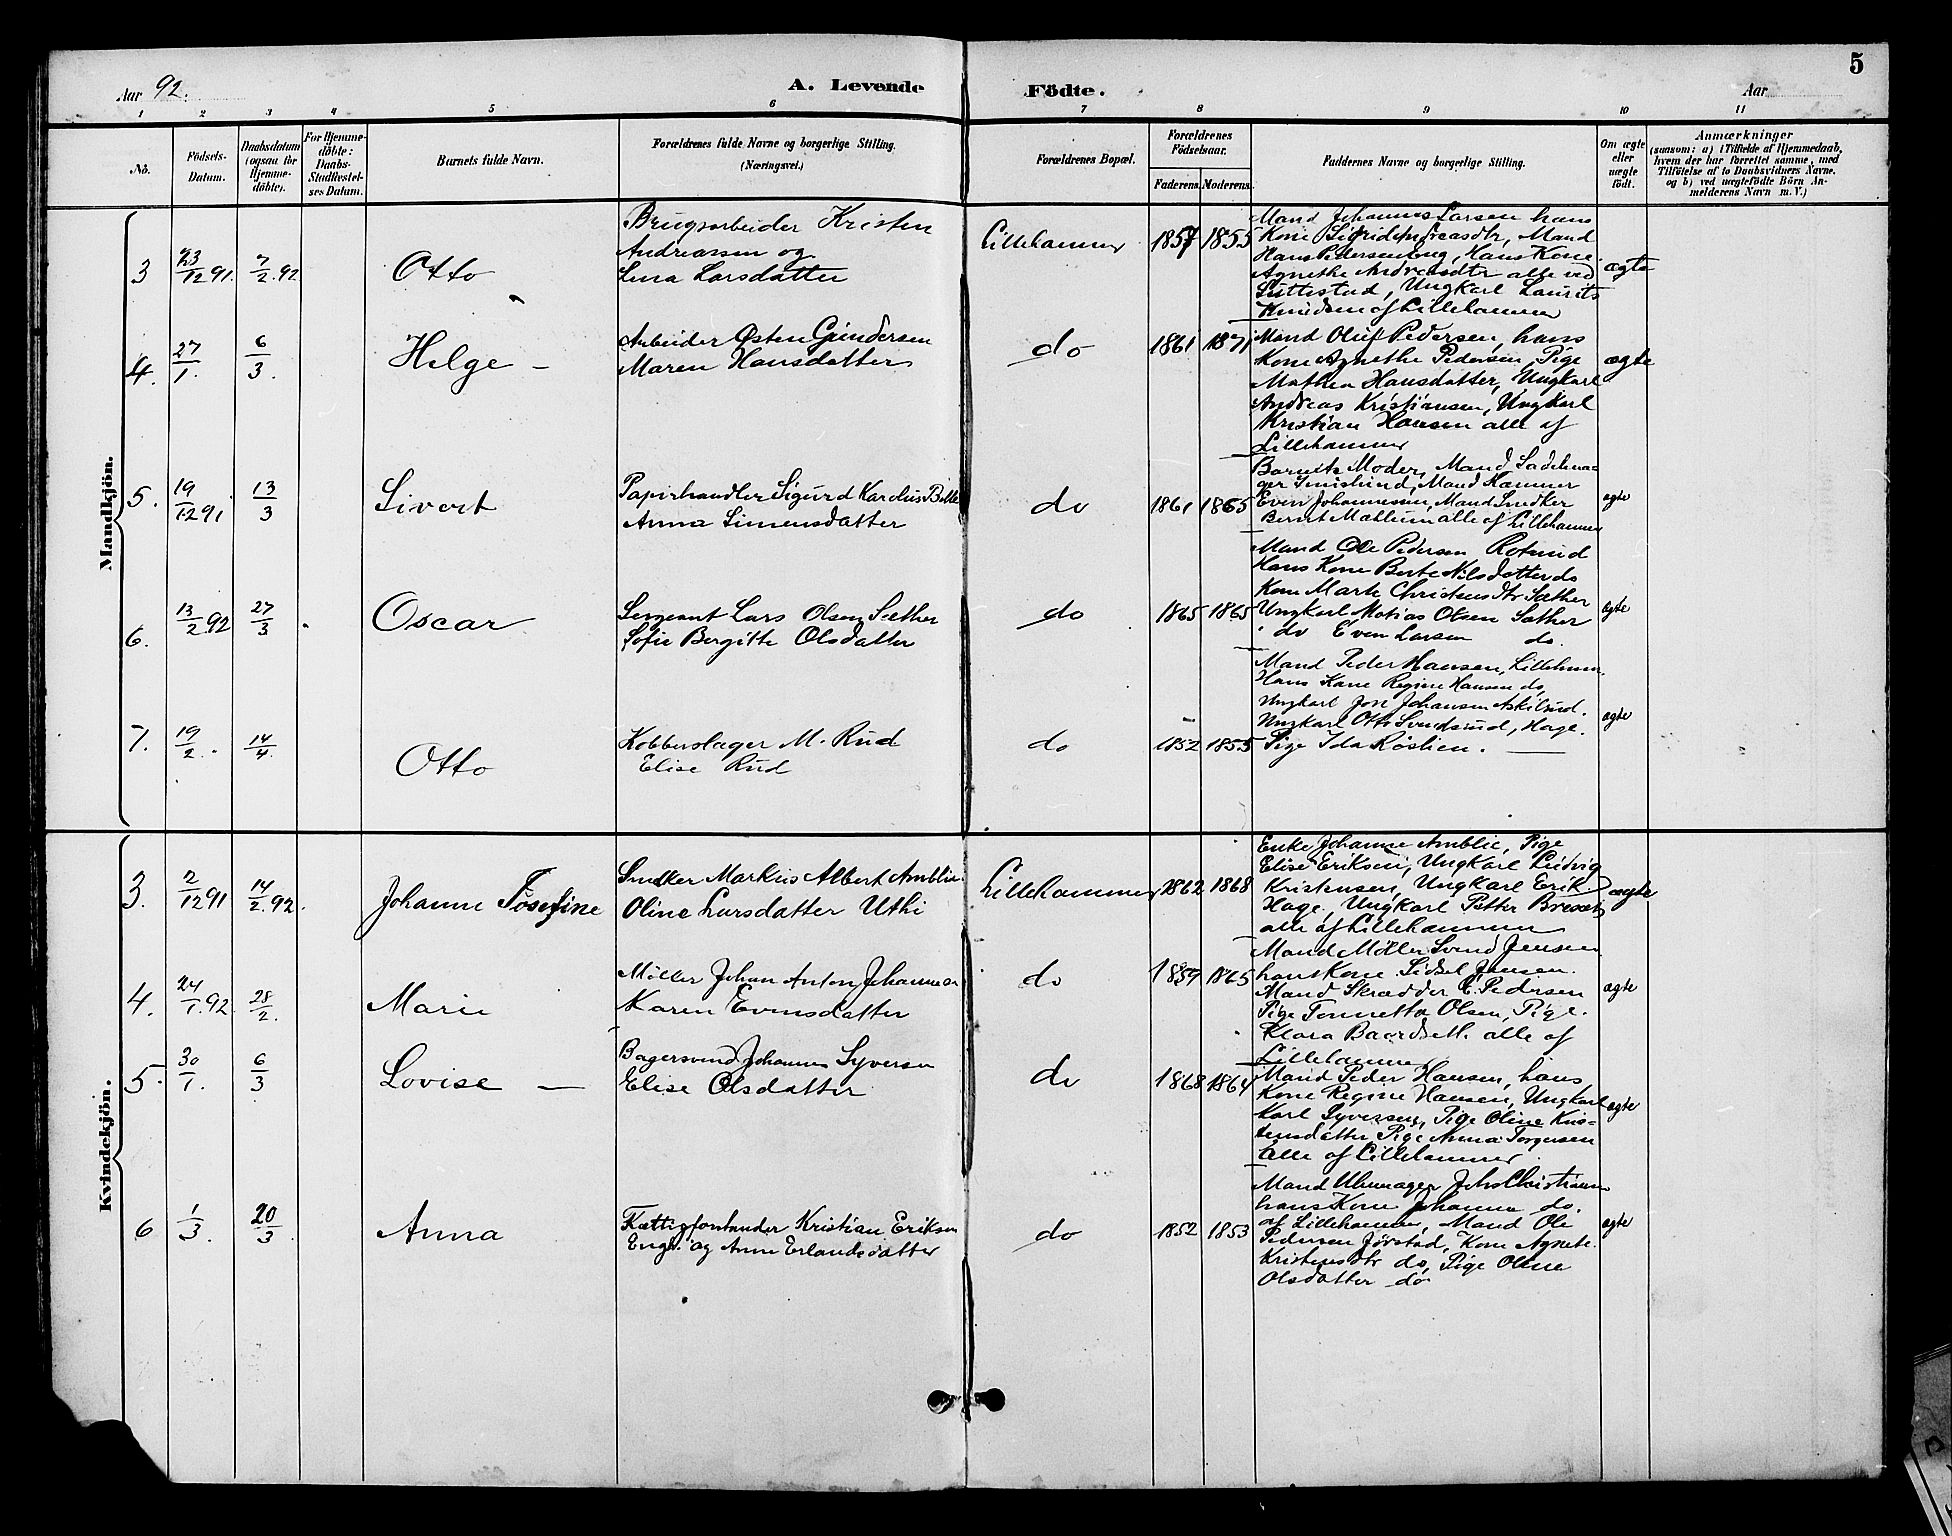 5
Aar 92.
A. Levende
Födte.
Aar
1 2 3 4 5 6 7 8 9 10 11
No.
Födsels-
Datum.
Daabsdatum
(ogsaa for
Hjemme-
döbte).
For Hjemme-
döbte:
Daabs-
Stadfestel-
ses Datum.
Barnets fulde Navn.
Forældrenes fulde Navne og borgerlige Stilling.
(Næringsvei.)
Forældrenes Bopæl.
Forældrenes
Födselsaar.
Faderens. Moderens.
Faddernes Navne og borgerlige Stilling.
Om ægte
eller
uægte
födt.
Anmærkninger
(saasom: a) i Tilfælde af Hjemmedaab,
hvem der har forrettet samme, med
Tilföielse af to Daabsvidners Navne,
og b) ved uægtefödte Börn An-
melderens Navn m. V.)
Mandkjön.
3 23/12 91. 7/2. 92 Otto
Brugsarbeider Kristen
Andreassen og
Lena Larsdatter
Lillehammer 1857 1855
Mand Johannes Larsen hans
Kone Sigrid Andreasdtr, Mand
Hans Pedersen, Hans Kone
Agnethe Andreasdtr alle ved
Suttestad, Ungkarl Laurits
Knudsen af Lillehammer
ægte
4. 27/1. 6/3. Helge –
Arbeider Østen Gundersen
Maren Hansdatter
do 1861 1871
Mand Oluf Pedersen, hans
Kone Agnethe Pedersen, Pige
Mathea Hansdatter, Ungkarl
Andreas Kristiansen, Ungkarl
Kristian Hansen alle af
Lillehammer
ægte
5. 19/12 91 13/3 Sivert
Papirhandler Sigurd Karelius
Anna Simensdatter
do 1861 1865
Barnets Moder, Mand Sadelma-
ger, Mand
Even Johannesen, Mand Snedker
Bernt Mæhlum alle af Lillehammer
ægte
6. 13/2 92 27/3 Oscar
Sergeant Lars Olsen Sæther
Sofie Bergitte Olsdatter
do 1865 1865
Mand Ole Pedersen
Hans Kone Berte Nilsdatter do
Kone Marte Christensdtr Sæther
Ungkarl Matias Olsen Sæther
do Even Larsen do.
ægte
7. 19/2. 14/4. Otto
Kobberslager M. Rud
Elise Rud
do 1852 1855
Mand Peder Hansen, Lillehmr.
Hans Kone Regine Hansen do,
Ungkarl Johansen
Ungkarl Otto Svendsrud, Hage.
Pige Ida Røstien.
ægte
Kvindekjön.
3. 2/12 91 14/2. 92. Johanne Josefine
Snedker Markus Albert Amblie
Oline Larsdatter Uthi
Lillehammer 1862 1868
Enke Johanne Amblie, Pige
Elise Eriksen, Ungkarl Ludvig
Kristensen, Ungkarl Erik
Hage, Ungkarl Petter
alle af Lillehammer
ægte
4. 24/1. 92. 28/2. Marie
Møller Johan Anton Johannesen
Karen Evensdatter
do 1859 1865
Mand Møller Svend Jensen
hans Kone Sidsel Jensen.
Mand Skrædder E. Pedersen
Pige Tonnetta Olsen, Pige.
Klara Baardseth. alle af
Lillehammer
ægte
5. 30/1. 6/3 Lovise –
Bagersvend Johannes Syversen
Elise Olsdatter
do 1868 1864
Mand Peder Hansen, hans
Kone Regine Hansen, Ungkarl
Karl Syversen, Pige Oline Kris-
tensdatter Pige Anna Torgersen
Alle af Lillehammer
ægte
6 1/3. 20/3. Anna
Fattigforstander Kristian Eriksen
Enge. og Anne Erlandsdatter
do 1852 1853
Mand Uhrmager Johs Christiansen
hans Kone Johanne do.
af Lillehammer, Mand Ole
Pedersen Jørstad, Kone Agnete
Kristensdtr do, Pige Oline
Olsdatter do
ægte